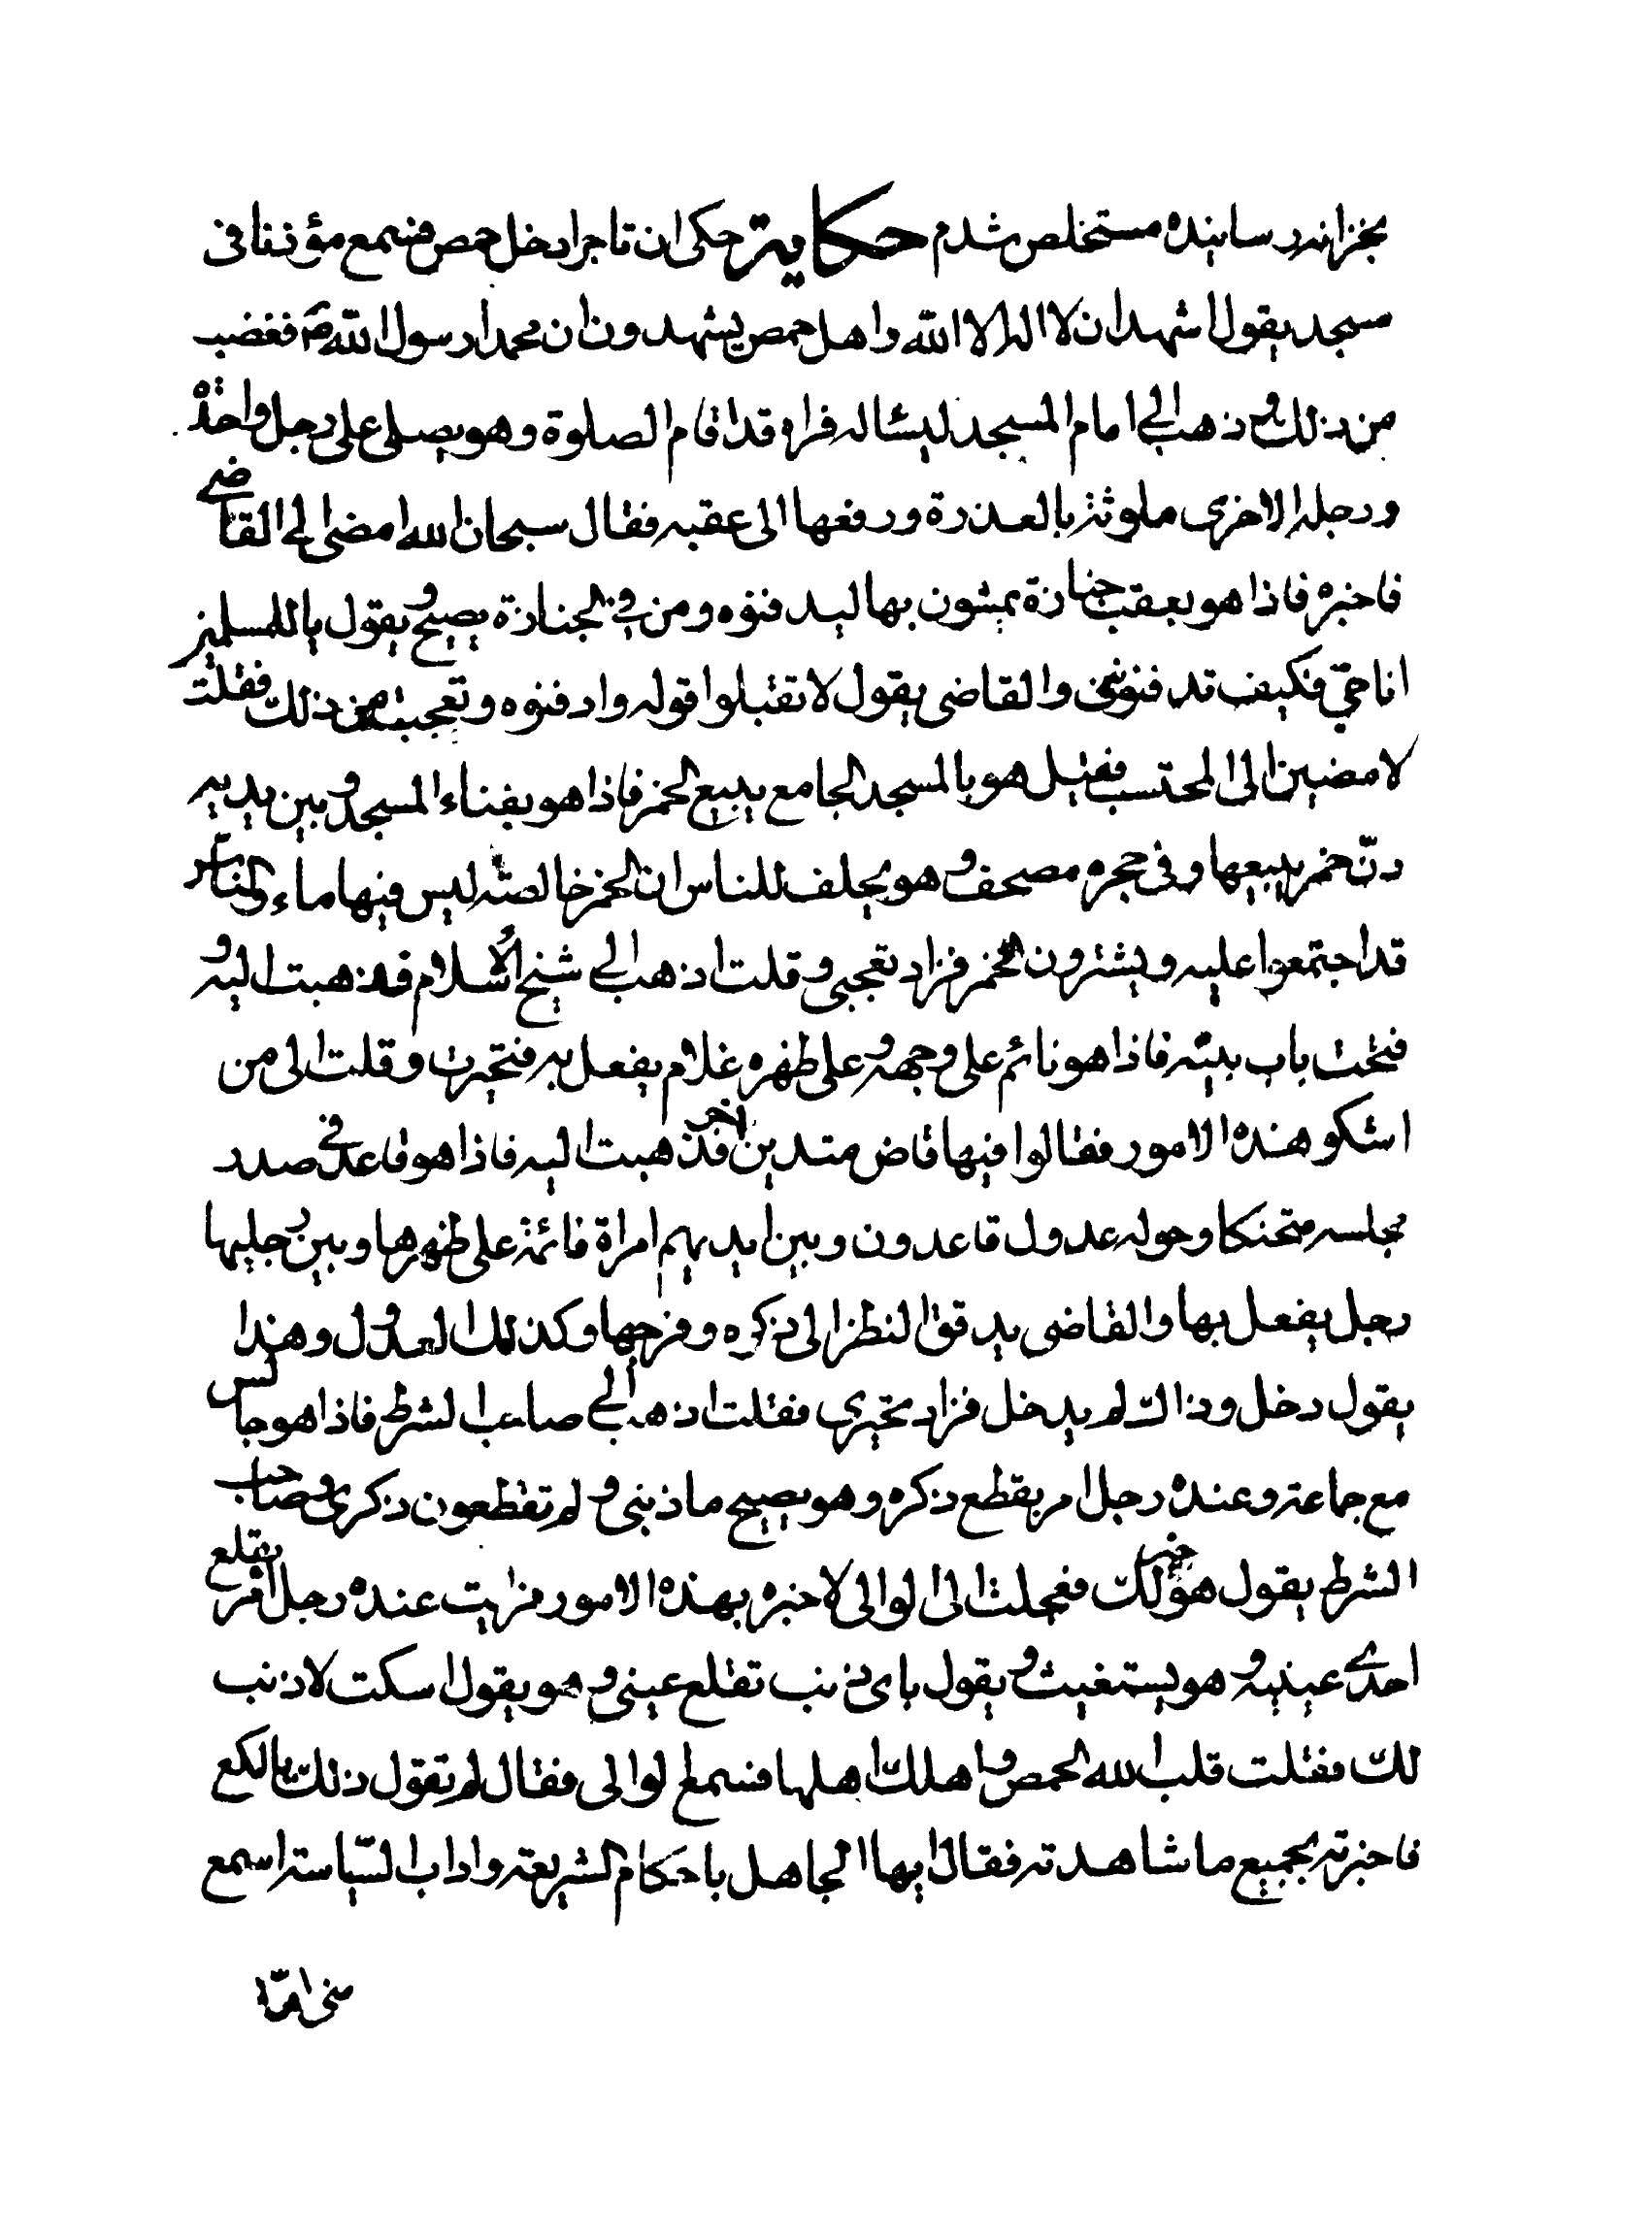 بخزانه رسانیده مستخلص شدم حكایة حكی ان تاجرا دخل حمص فسمع مؤذنا فی
مسجد یقول اشهد ان لا اله الا الله و اهل حمص یشهدون ان محمدا رسول الله ص فغضب
من ذلك و ذهب الی امام المسجد لیسئاله فراه قد اقام الصلوة و هو یصلی علی رجل واحدة
و رجله الاخری ملوثة بالعذرة و رفعها الی عقبه فقال سبحان الله امضی الی القاضی
فاخبره فاذا هو بعقب جنازة یمشون بها لیدفنوه و من فی الجنازة یصیح و یقول یا للمسلمین
انا حیّ فكیف تدفنوننی و القاضی یقول لا تقبلوا قوله و ادفنوه و تعجبت من ذلك فقلت
لامضین الی المحتسب فقیل هو بالمسجد الجامع یبیع الخمر فاذا هو بفناء المسجد و بین یدیه
دنّ خمر یبیعها و فی حجره مصحف و هو یحلف للناس ان الخمر خالصة لیس فیها ماء و الناس
قد اجتمعوا علیه و یشترون الخمر فزاد تعجبی و قلت اذهب الی شیخ الاسلام فذهبت الیه و
فتحت باب بیته فاذا هو نائم علی وجهه و علی ظهره غلام یفعل به فتحیرت و قلت الی من
اشكو هذه الامور فقالوا فیها قاض متدین اخر فذهبت الیه فاذا هو قاعد فی صدر
مجلسه متحنكا و حوله عدول قاعدون و بین ایدیهم امراة نائمة علی ظهرها و بین رجلیها
رجل یفعل بها و القاضی یدقق النظر الی ذكره و فرجها و كذلك العدول و هذا
یقول دخل و ذاك لم یدخل فزاد تحیری فقلت اذهب الی صاحب الشرط فاذا هو جالس
مع جماعة و عنده رجل امر بقطع ذكره و هو یصیح ما ذنبی و لم تقطعون ذكری و صاحب
الشرط یقول هو خیر لك فعجلت الی الوالی لاخبره بهذه الامور فرایت عنده رجل امر بقلع
احدی عینیه و هو یستغیث و یقول بای ذنب تقلع عینی و هو یقول اسكت لا ذنب
لك فقلت قلب الله الحمص و اهلك اهلها فسمع الوالی فقال لم تقول ذلك یا لكع
فاخبرته بجمیع ما شاهدته فقال ایها الجاهل باحكام الشریعة و اداب السّیاسة اسمع
منی امّا